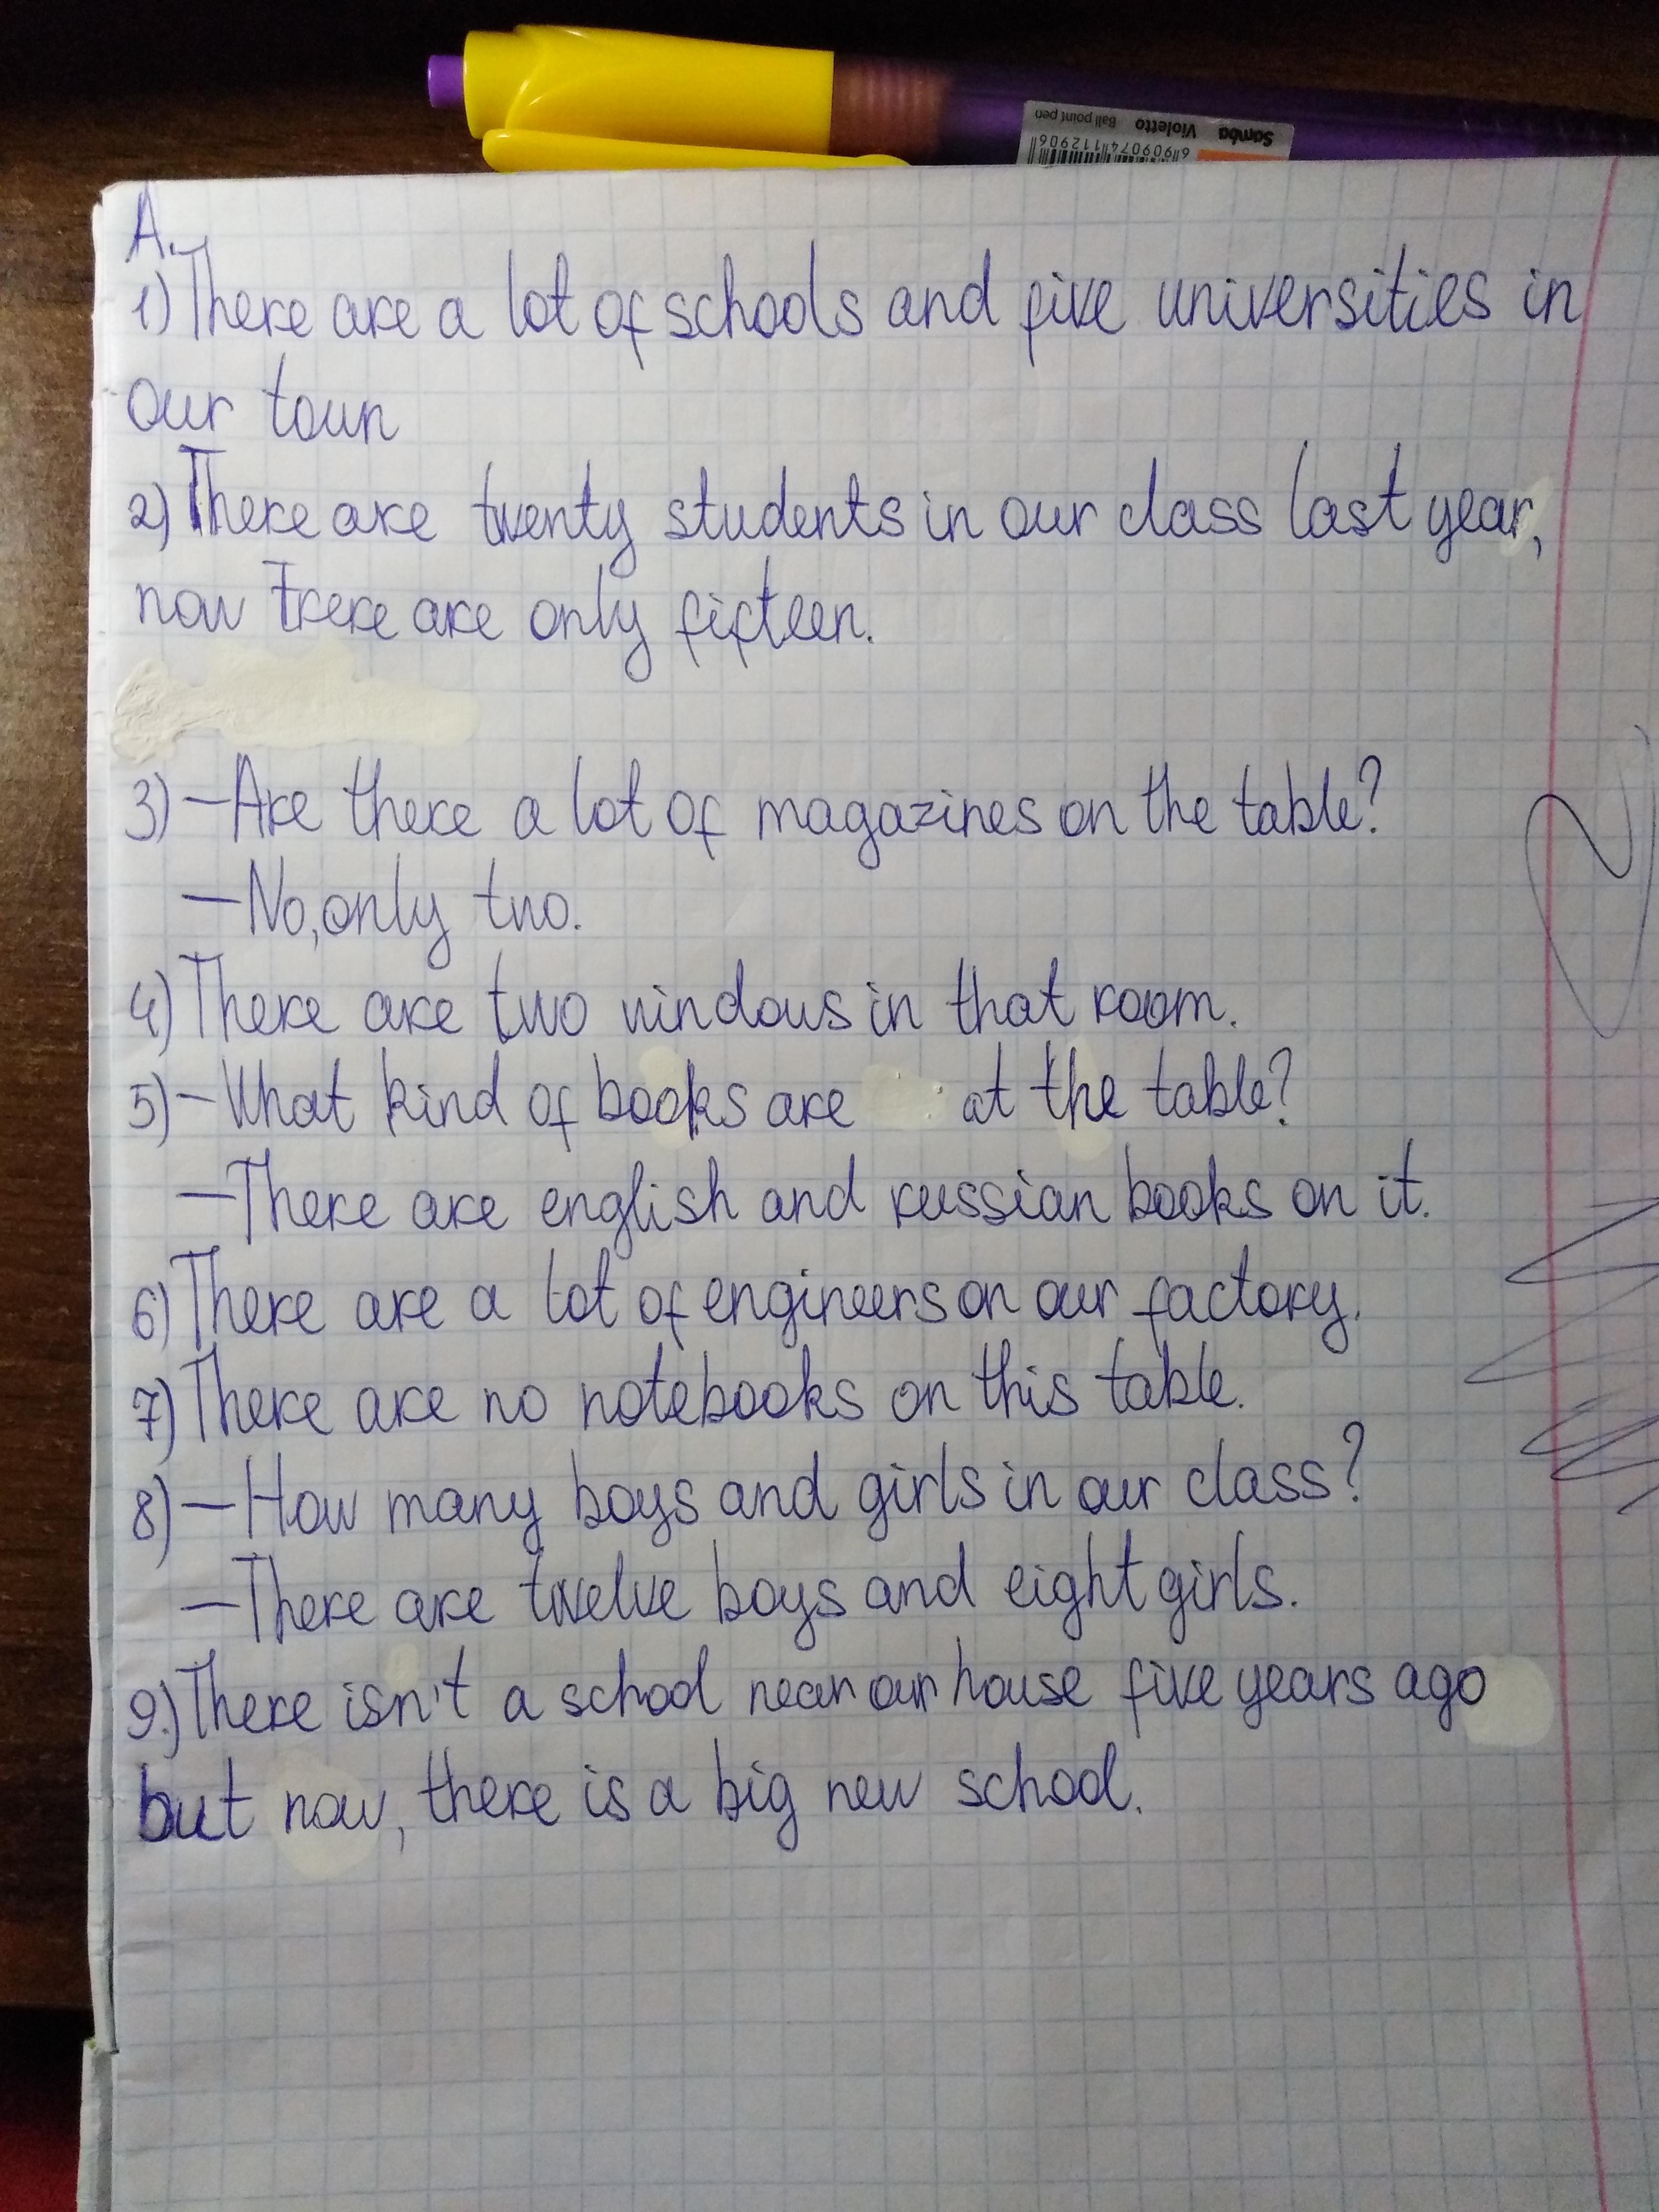 Samba
Violetto Ball point pen
6 909074 112906
A.
1) There are a lot of schools and five universities in
our town
2) There are twenty students in our class last year,
now there are only fifteen.
3) – Are there a lot of magazines on the table?
– No, only two.
4) There are two windows in that room.
5) – What kind of books are at the table?
– There are english and russian books on it.
6) There are a lot of engineers on our factory.
7) There are no notebooks on this table.
8) – How many boys and girls in our class?
– There are twelve boys and eight girls.
9.) There isn't a school near our house five years ago
but now, there is a big new school.